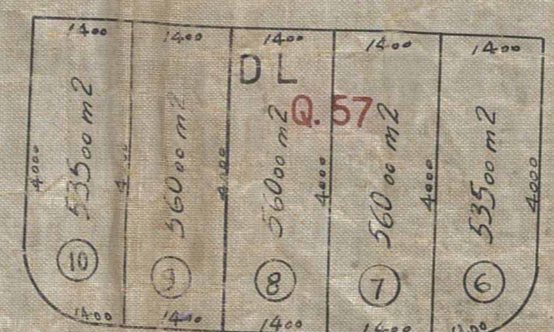 1400 1400 1400 1400 1400
DL
Q. 57
4000 53500 m2 4000 56000 m2 4000 56000 m2 4000 56000 m2 4000 53500 m2 4000
10 9 8 7 6
1400 1400 1400 1400 1400